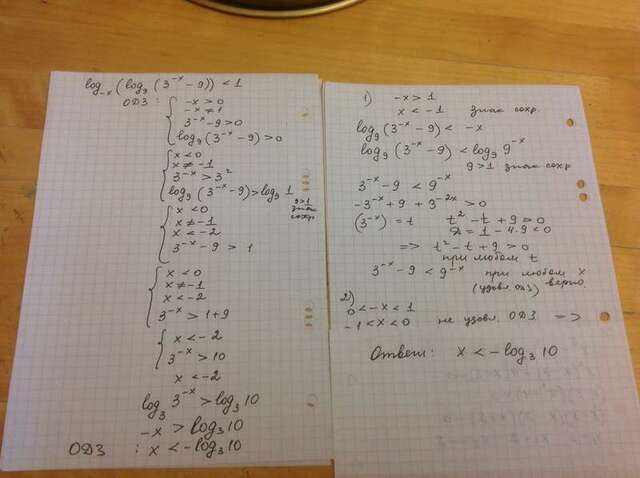 log₋ₓ(log₉(3⁻ˣ-9)) < 1
ОДЗ: { -x > 0
-x ≠ 1
3⁻ˣ-9 > 0
log₉(3⁻ˣ-9) > 0
{ x < 0
x ≠ -1
3⁻ˣ > 3²
log₉(3⁻ˣ-9) > log₉ 1
9 > 1 знак сохр
{ x < 0
x ≠ -1
x < -2
3⁻ˣ - 9 > 1
{ x < 0
x ≠ -1
x < -2
3⁻ˣ > 1+9
{ x < -2
3⁻ˣ > 10
x < -2
log₃ 3⁻ˣ > log₃ 10
-x > log₃ 10
ОДЗ : x < -log₃ 10
1) -x > 1
x < -1 знак сохр.
log₉(3⁻ˣ-9) < -x
log₉(3⁻ˣ-9) < log₉ 9⁻ˣ
9 > 1 знак сохр
3⁻ˣ-9 < 9⁻ˣ
-3⁻ˣ+9+3⁻²ˣ > 0
(3⁻ˣ) = t t²-t+9 > 0
Д = 1-4·9 < 0
=> t²-t+9 > 0
при любом t
3⁻ˣ-9 < 9⁻ˣ при любом x
(удовл ОДЗ) верно
2)
0 < -x < 1
-1 < x < 0 не удовл. ОДЗ =>
Ответ: x < -log₃ 10